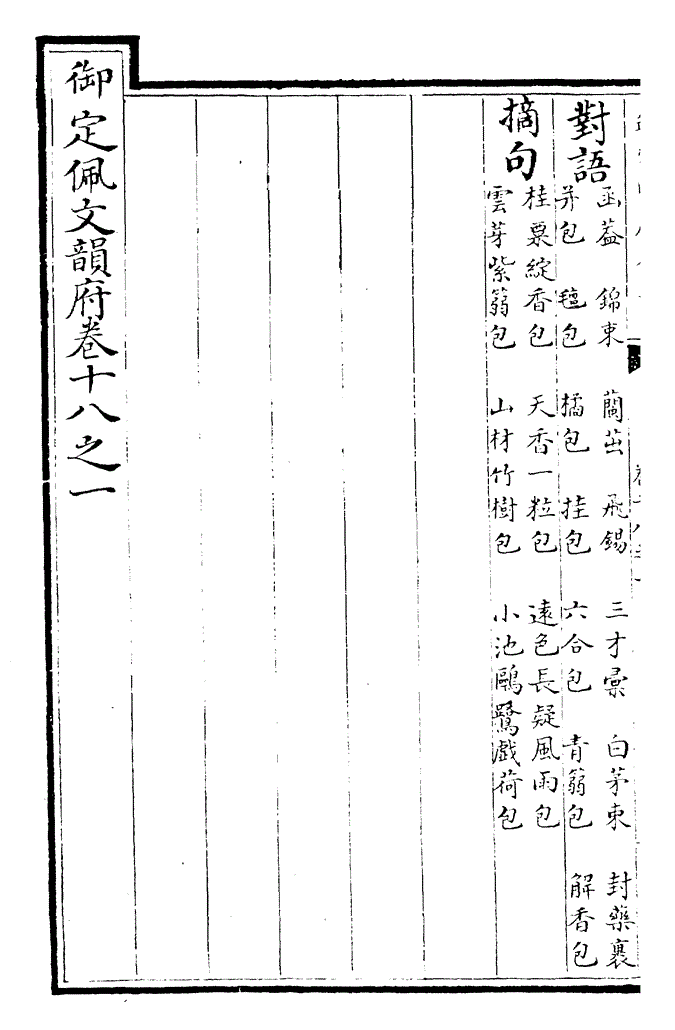 對語
函蓋 錦束 蘭茁 飛錫 三才彙 白茅束 封藥裹
并包 氊包 橘包 挂包 六合包 青箬包 解香包
摘句
桂粟綻香包 天香一粒包 遠色長疑風雨包
雲芽紫篛包 山材竹樹包 小池鷗鷺戲荷包
御定佩文韻府卷十八之一